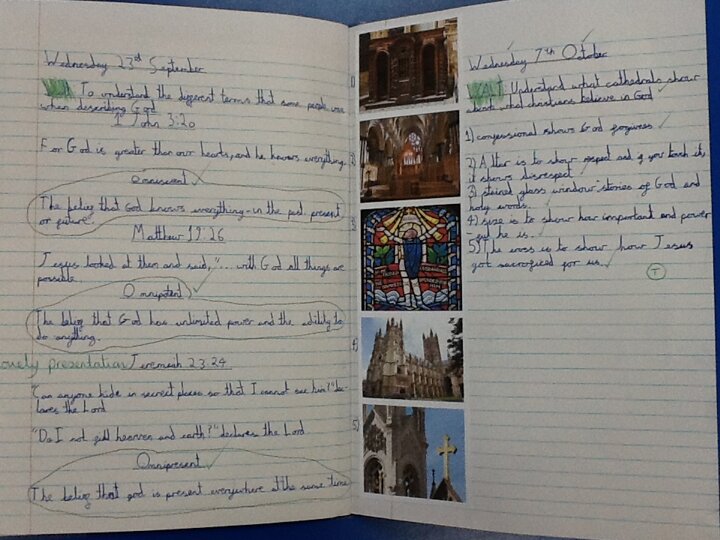 Wednesday 23rd September
WALT To understand the different terms that some people use
when describing God
1 John 3:20
For God is greater than our hearts, and he knows everything.
Omniscient
The belief that God knows everything-in the past, present
or future.
Matthew 19:26
Jesus looked at them and said, "... with God all things are
possible
Omnipotent
The belief that God has unlimited power and the ability to
do anything.
lovely presentation Jeremiah 23:24
"Can anyone hide in secret places so that I cannot see him?" de-
clares the Lord
"Do I not fill heaven and earth?" declares the Lord
Omnipresent
The belief that god is present everywhere at the same time
1)
2)
3)
4)
5)
Wednesday 7th October
WALT Understand what cathedrals show
about what christians believe in God
1) confessional shows God forgives
2) Alter is to show respect and if you touch it,
it shows disrespect.
3) stained glass window stories of God and
holy words.
4) size is to show how important and power
he is.
5) The cross is to show how Jesus
got sacrificed for us.
T